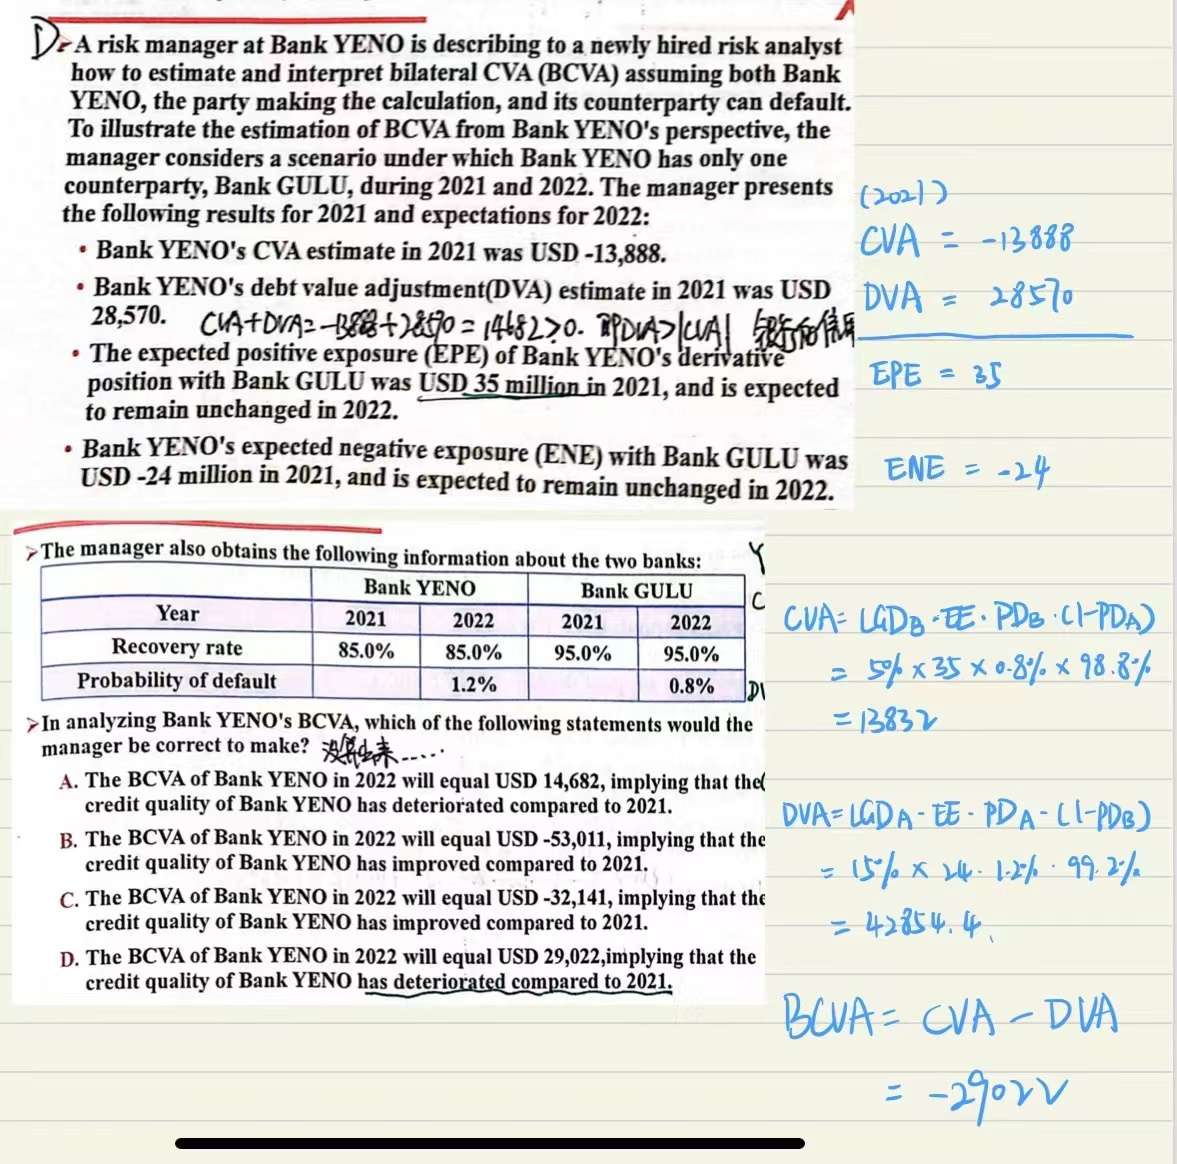 D
➢A risk manager at Bank YENO is describing to a newly hired risk analyst
how to estimate and interpret bilateral CVA (BCVA) assuming both Bank
YENO, the party making the calculation, and its counterparty can default.
To illustrate the estimation of BCVA from Bank YENO's perspective, the
manager considers a scenario under which Bank YENO has only one
counterparty, Bank GULU, during 2021 and 2022. The manager presents
the following results for 2021 and expectations for 2022:
• Bank YENO's CVA estimate in 2021 was USD -13,888.
• Bank YENO's debt value adjustment(DVA) estimate in 2021 was USD
28,570.
CVA+DVA=-13888+28570=14682>0. 即DVA>|CVA|
• The expected positive exposure (EPE) of Bank YENO's derivative
position with Bank GULU was USD 35 million in 2021, and is expected
to remain unchanged in 2022.
• Bank YENO's expected negative exposure (ENE) with Bank GULU was
USD -24 million in 2021, and is expected to remain unchanged in 2022.
(2021)
CVA = -13888
DVA = 28570
EPE = 35
ENE = -24
➢The manager also obtains the following information about the two banks:
Bank YENO Bank GULU
Year 2021 2022 2021 2022
Recovery rate 85.0% 85.0% 95.0% 95.0%
Probability of default 1.2% 0.8%
➢In analyzing Bank YENO's BCVA, which of the following statements would the
manager be correct to make? 没算出来.....
A. The BCVA of Bank YENO in 2022 will equal USD 14,682, implying that the
credit quality of Bank YENO has deteriorated compared to 2021.
B. The BCVA of Bank YENO in 2022 will equal USD -53,011, implying that the
credit quality of Bank YENO has improved compared to 2021.
C. The BCVA of Bank YENO in 2022 will equal USD -32,141, implying that the
credit quality of Bank YENO has improved compared to 2021.
D. The BCVA of Bank YENO in 2022 will equal USD 29,022,implying that the
credit quality of Bank YENO has deteriorated compared to 2021.
CVA= LGDB·EE·PDB·(1-PDA)
= 5% x 35 x 0.8% x 98.8%
= 13832
DVA= LGDA-EE-PDA-(1-PDB)
= 15% x 24·1.2%·99.2%
= 42854.4
BCVA = CVA - DVA
= -29022